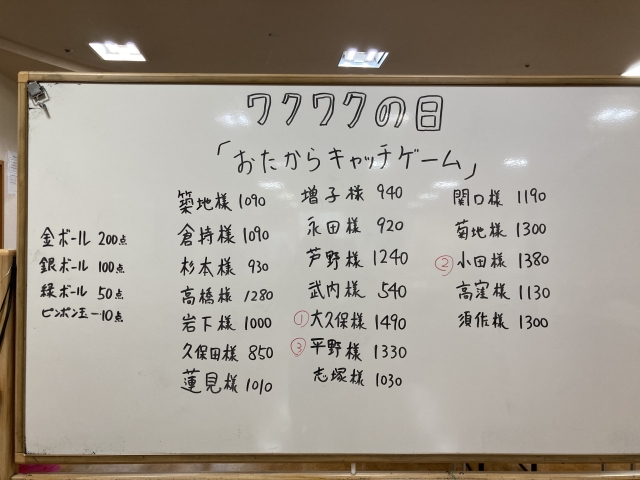 ワクワクの日
「おたからキャッチゲーム」
金ボール 200点
銀ボール 100点
緑ボール 50点
ピンポン玉…10点
築地様 1090
倉持様 1090
杉本様 930
高橋様 1280
岩下様 1000
久保田様 850
蓮見様 1010
増子様 940
永田様 920
芦野様 1240
武内様 540
①大久保様 1490
③平野様 1330
志塚様 1030
関口様 1190
菊地様 1300
②小田様 1380
高窪様 1130
須佐様 1300